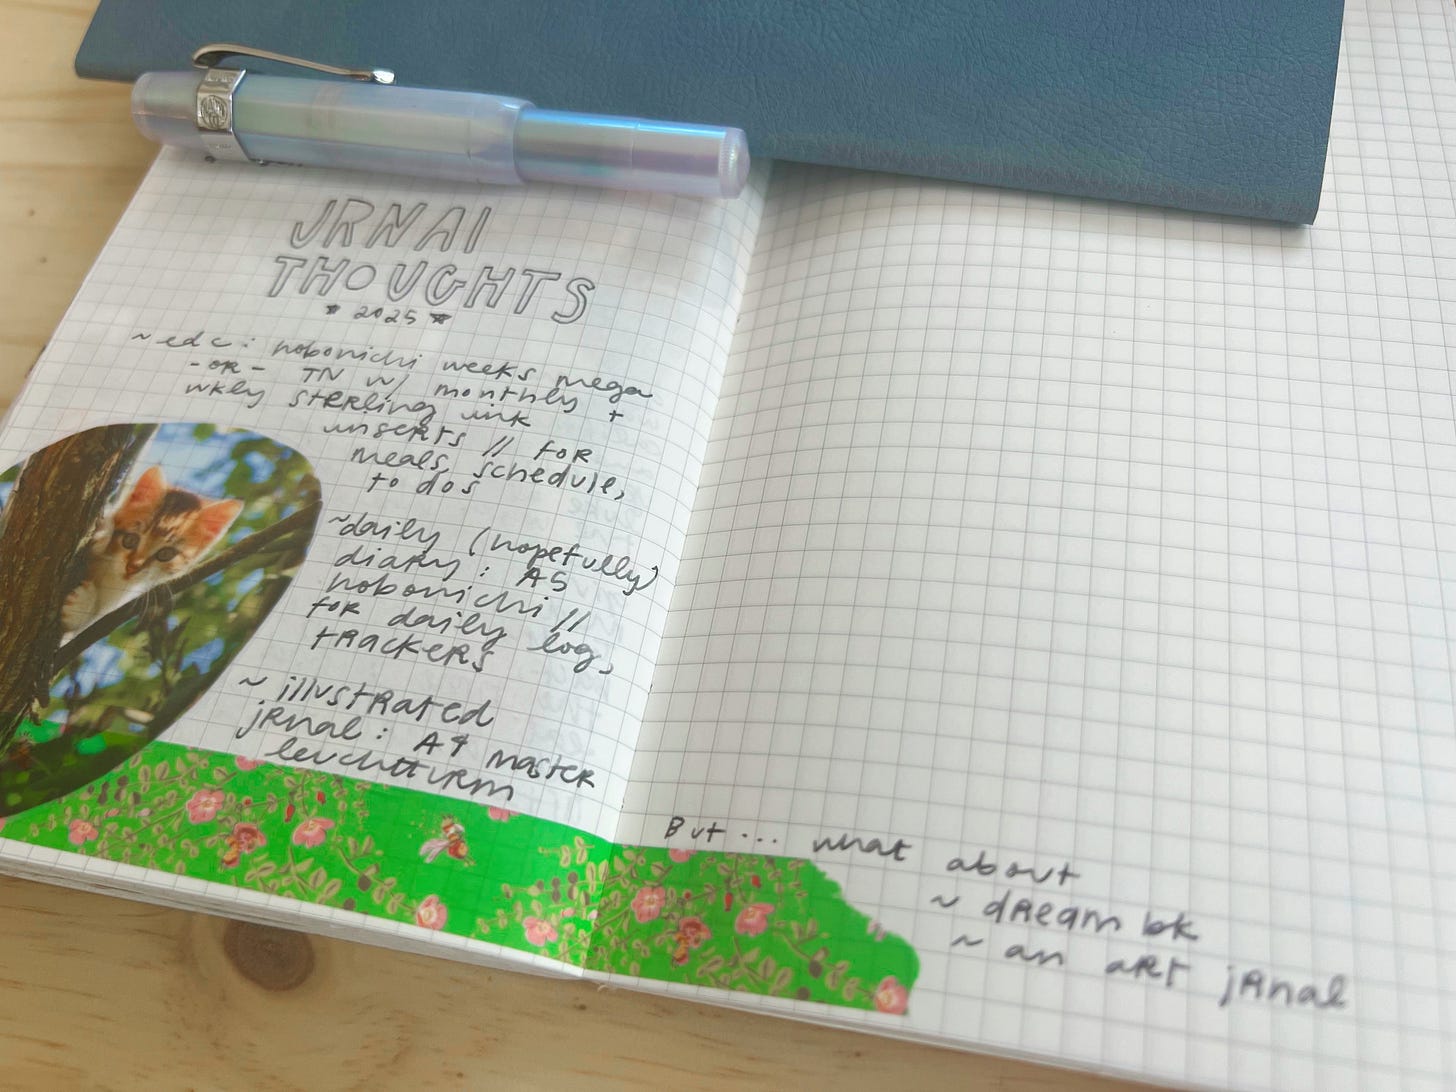 JRNAl
THOUGHTS
★ 2025 ★
~ edc: hobonichi weeks mega
-OR- TN w/ monthly +
wkly sterling ink
inserts // for
meals, schedule,
to dos
~daily (hopefully)
diary: A5
hobonichi //
for daily log,
trackers
~ illustrated
jrnal: A4 master
leuchtturm
But ... what about
~ dream bk
~ an art jrnal